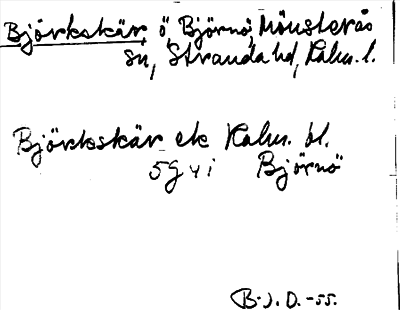 Björkskär, ö, Björnö, Mönsterås
sn, Stranda hd, Kalm. l.
Björkskär ek Kalm. bl.
5g4i Björnö
B-J.D.-55.